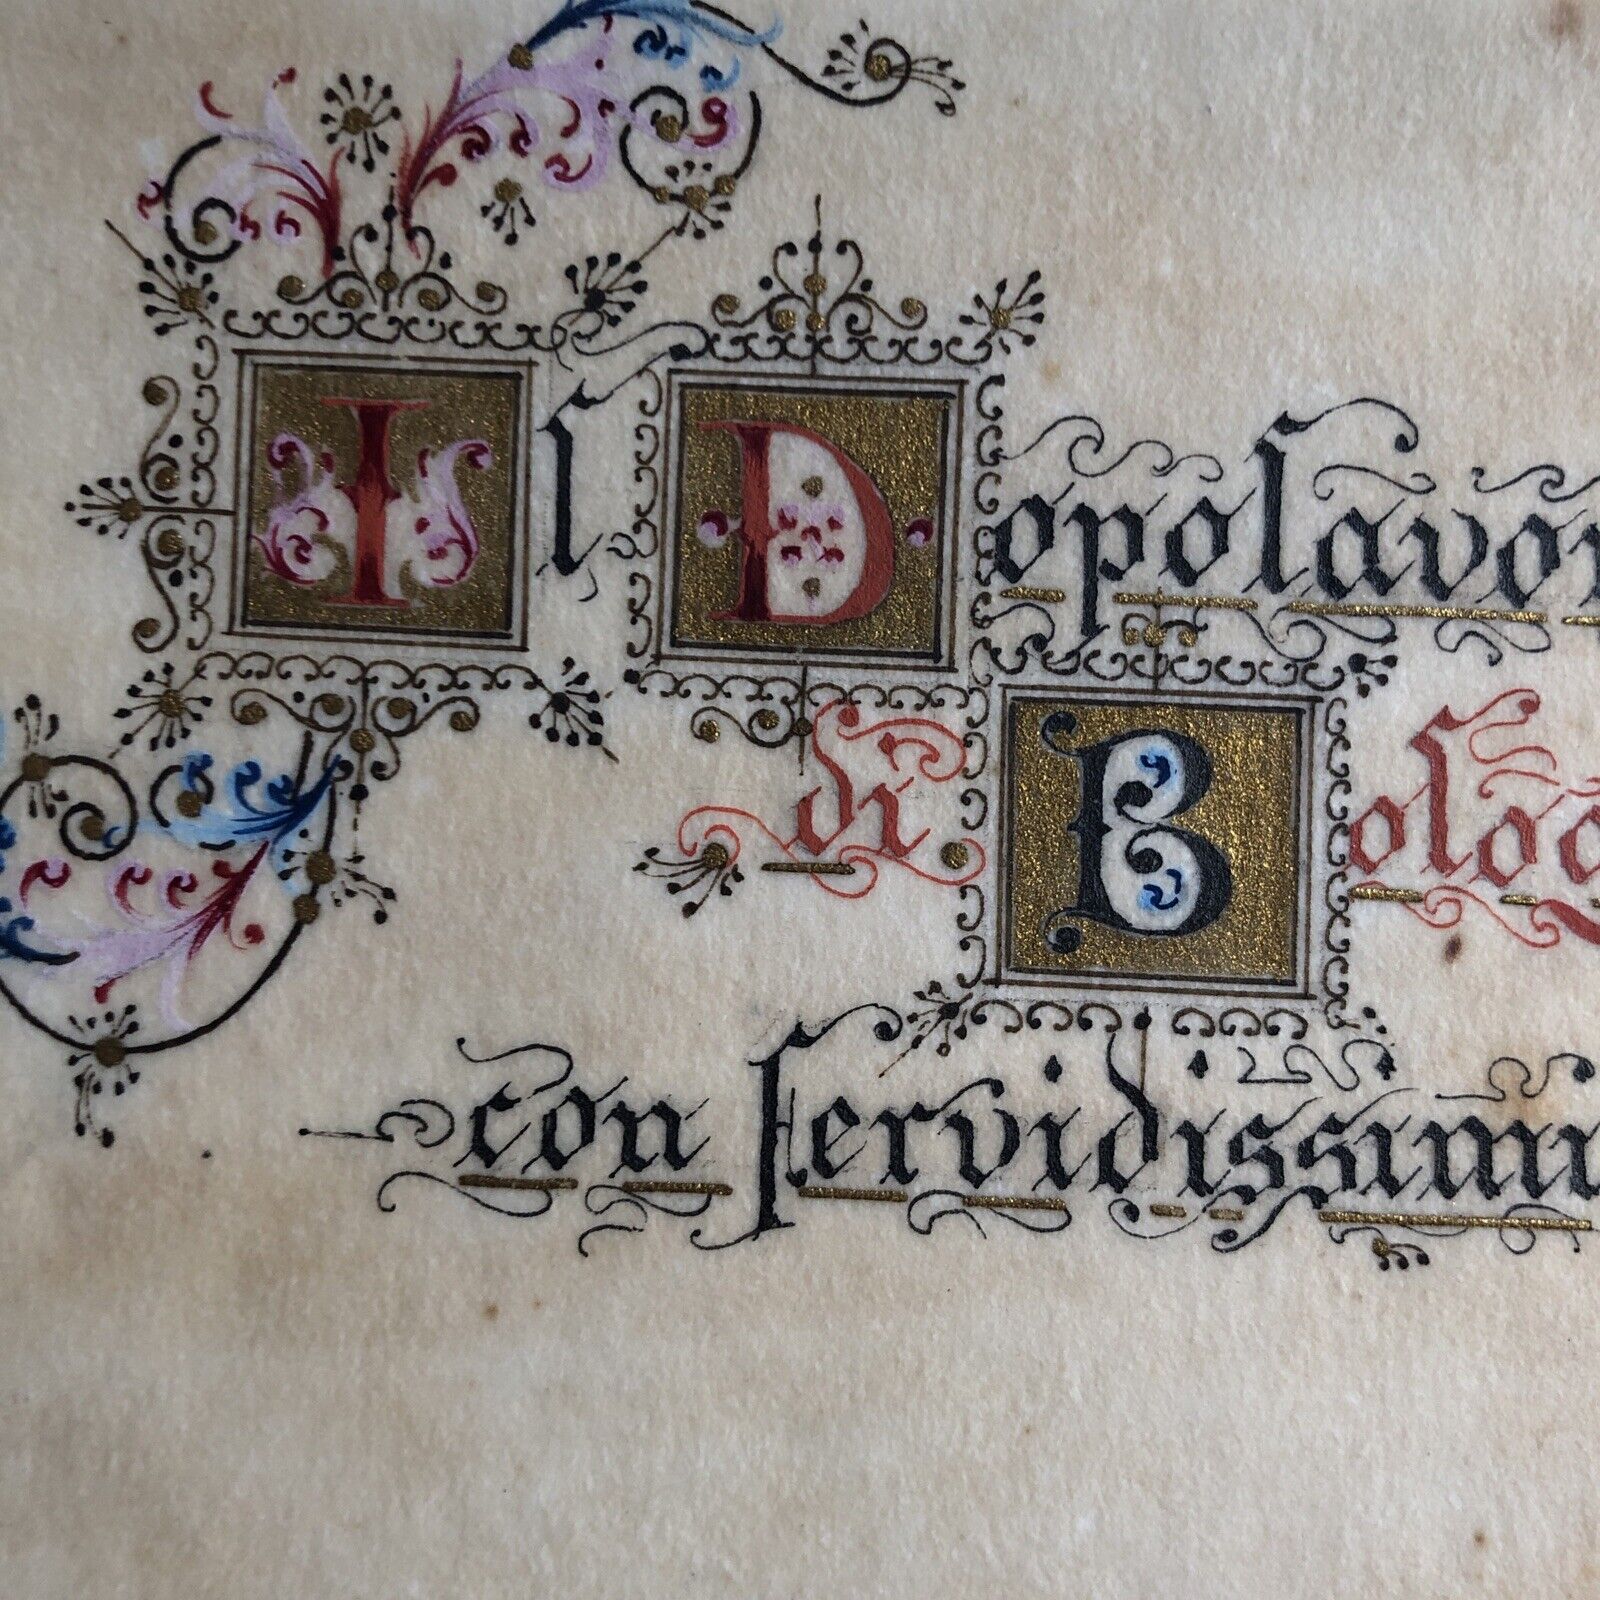 Il Dopolavor
di Bolog
con servidissimi